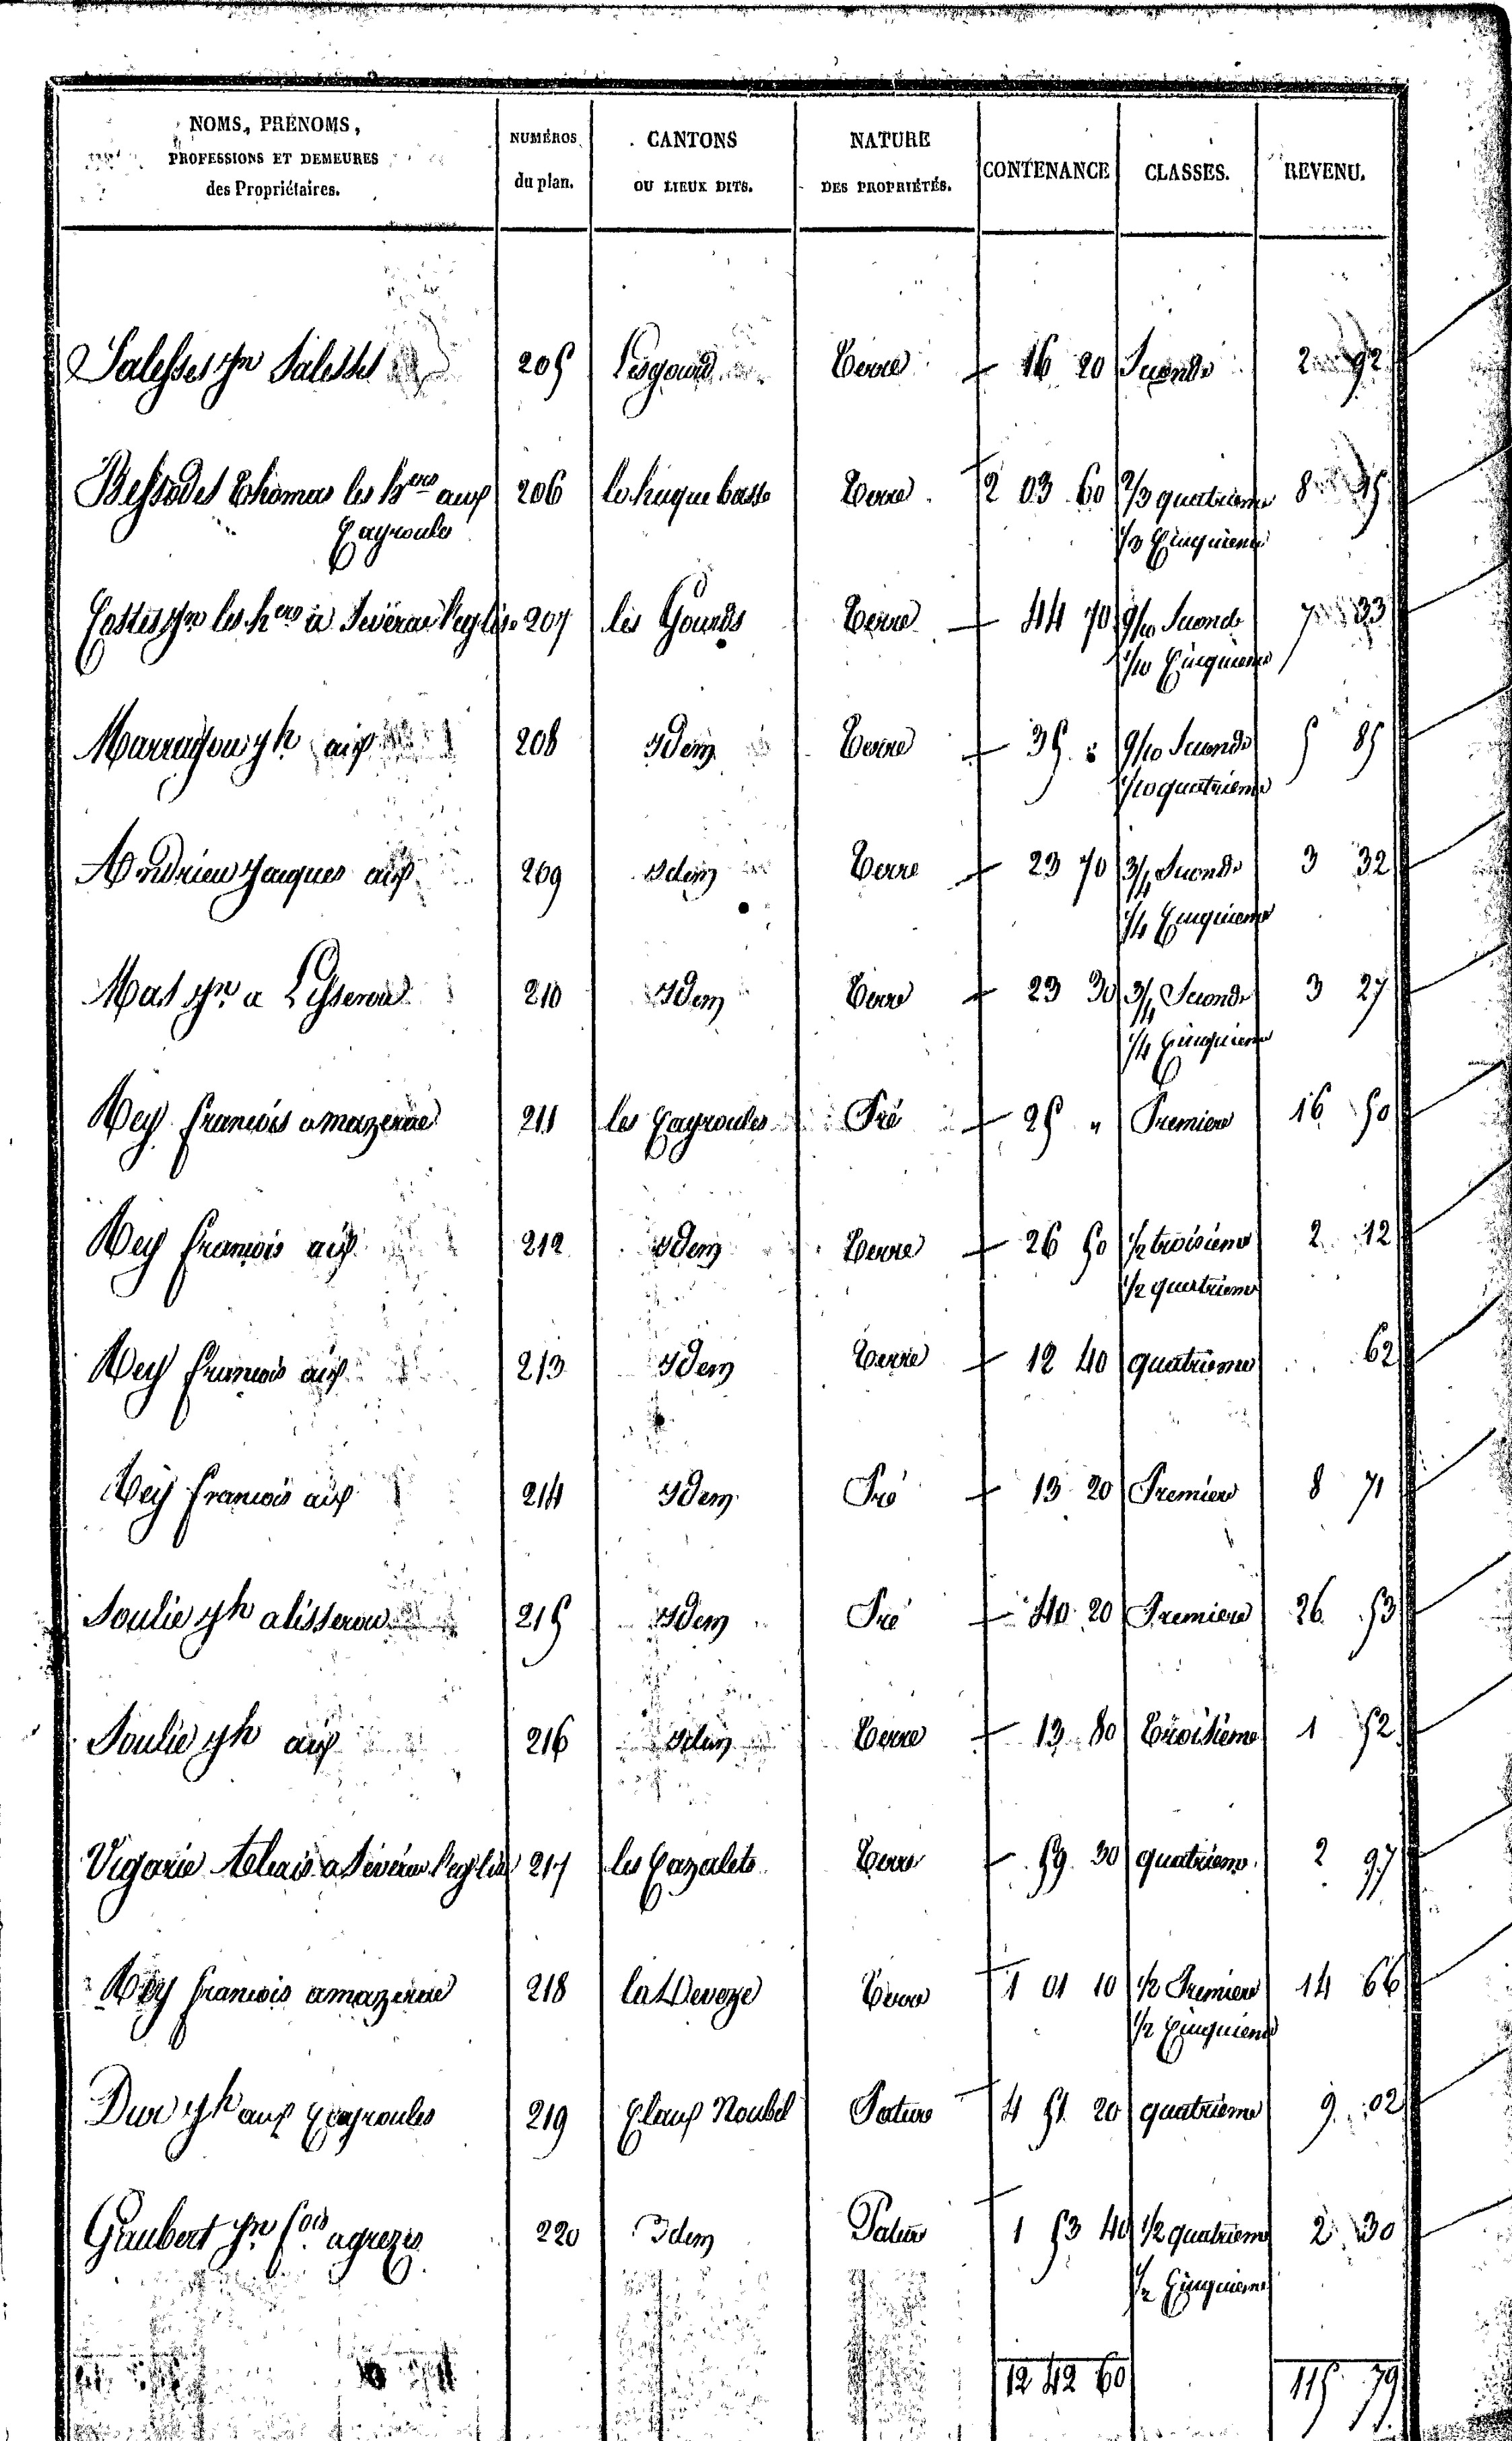 NOMS, PRÉNOMS, PROFESSIONS ET DEMEURES des Propriétaires. NUMÉROS du plan. CANTONS OU LIEUX DITS. NATURE DES PROPRIÉTÉS. CONTENANCE CLASSES. REVENU.
Salesses jn Salesses 205 Lesgourds Terre 16 20 Seconde 2 92
Bessodes Thomas les hers aux 206 la hugue basse Terre 2 03 60 2/3 quatrieme 8 15
Cayroules 1/3 Cinquieme
Costes jn les hers a Séverac l'eglise 207 les Gourds Terre 44 70 9/10 Seconde 7 33
1/10 Cinquieme
Marragou jh aux 208 Idem Terre 35 " 9/10 Seconde 5 85
1/10 quatrieme
Andrieu Jacques aux 209 idem Terre 23 70 3/4 Seconde 3 32
1/4 Cinquieme
Mas jn a Lisserou 210 Idem Terre 23 30 3/4 Seconde 3 27
1/4 Cinquieme
Rey francois a mazerac 211 les Cayroules Pré 25 " Premiere 16 50
Rey francois aux 212 Idem Terre 26 50 1/2 troisieme 2 12
1/2 quatrieme
Rey francois aux 213 Idem Terre 12 40 quatrieme 62
Rey francois aux 214 Idem Pré 13 20 Premiere 8 71
Soulie jh a lisserou 215 Idem Pré 40 20 Premiere 26 53
Soulie jh aux 216 idem Terre 13 80 Troisieme 1 52
Vigarie Alexis a Séverac l'eglise 217 les Cazalets Terre 59 30 quatrieme 2 97
Rey francois a mazerac 218 la Deveze Terre 1 01 10 1/2 Premiere 14 66
1/2 Cinquieme
Dur jh aux Cayroules 219 Claux Noubel Pature 4 51 20 quatrieme 9 02
Gaubert jn fois a grezes 220 Idem Pature 1 53 40 1/2 quatrieme 2 30
1/2 Cinquieme
12 42 60 115 79